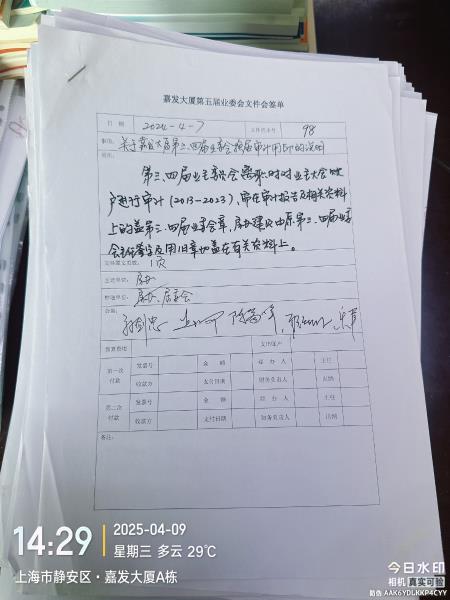 嘉发大厦第五届业委会文件会签单
日期 2024-4-7 文件流水号 98
事由: 关于嘉发大厦第三、四届业委会换届审计用印的说明
第三、四届业主委员会需要对业主大会账
户进行审计(2013-2023),审在审计报告及相关资料
上的盖第三、四届业委会章,房办建议由原第三、四届业委
会主任签字及用旧章加盖在有关资料上。
文件原文页数: 1页
主送单位: 房办
抄送单位: 房办、居委会
会签:
预算费用 支出账户
第一次付款 发票号 金额 经办人 主任
收款方 支付日期 财务负责人 出纳
第二次付款 发票号 金额 经办人 主任
收款方 支付日期 财务负责人 出纳
备注:
14:29 2025-04-09
星期三 多云 29℃
上海市静安区·嘉发大厦A栋
今日水印
相机 真实可验
防伪 AAK6YDLKKP4CYY